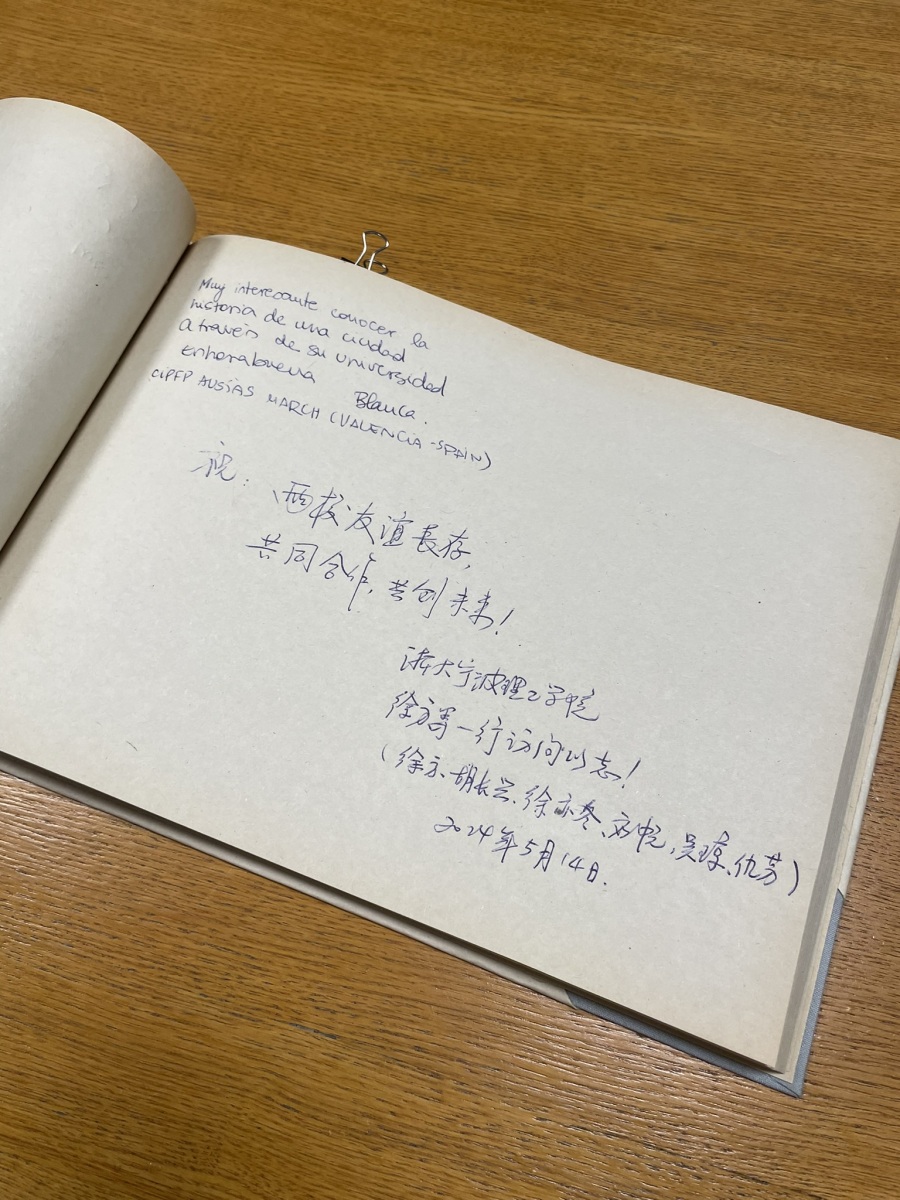 Muy interesante conocer la
historia de una ciudad
a través de su universidad
Enhorabuena Blanca.
CIPFP AUSIAS MARCH (VALENCIA-SPAIN)
祝:
两校友谊長存,
共同合作,共创未来!
浙大宁波理工学院
徐方 一行访问以志!
(徐方、胡长 、徐亦冬、刘悦,吴琼、仇芳)
2024年5月14日.